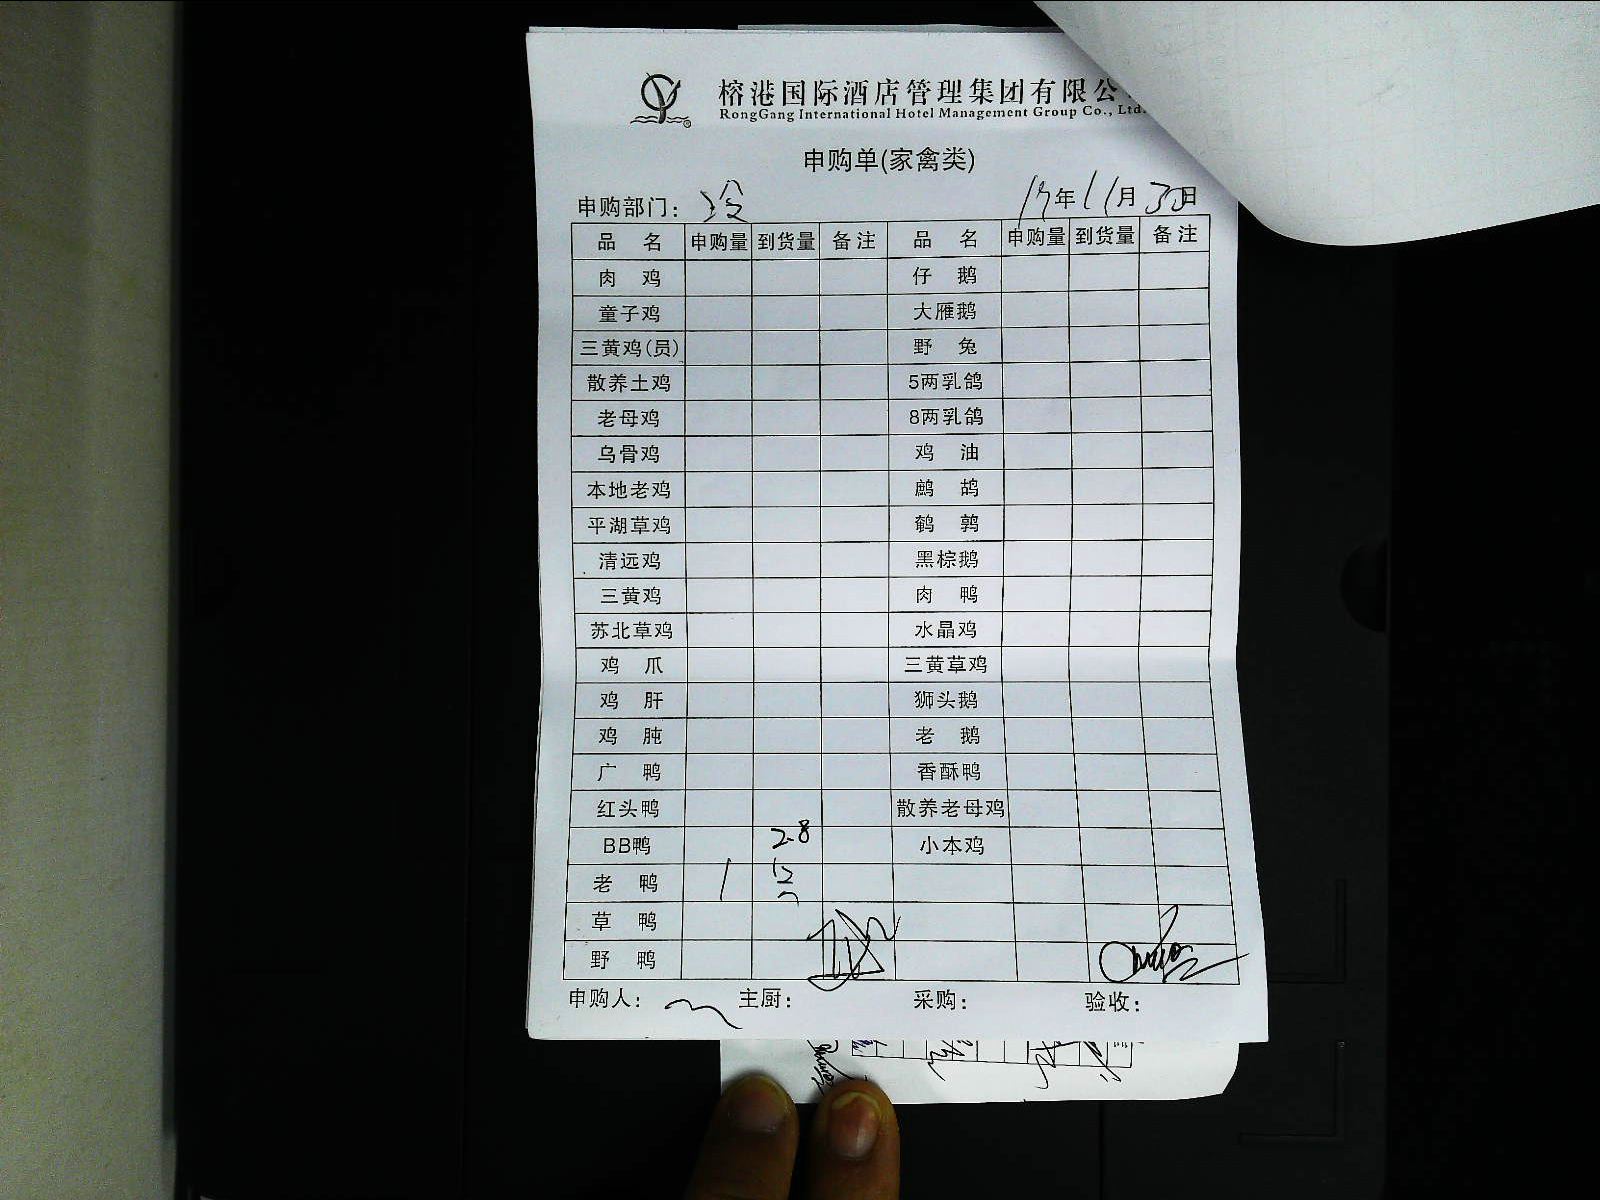 榕港国际酒店管理集团有限公
RongGang International Hotel Management Group Co., Ltd.
申购单(家禽类)
申购部门： 冷 17年11月30日
品 名 申购量 到货量 备注 品 名 申购量 到货量 备注
肉 鸡 仔 鹅
童子鸡 大雁鹅
三黄鸡(员) 野 兔
散养土鸡 5两乳鸽
老母鸡 8两乳鸽
乌骨鸡 鸡 油
本地老鸡 鹧 鸪
平湖草鸡 鹌 鹑
清远鸡 黑棕鹅
三黄鸡 肉 鸭
苏北草鸡 水晶鸡
鸡 爪 三黄草鸡
鸡 肝 狮头鹅
鸡 肫 老 鹅
广 鸭 香酥鸭
红头鸭 散养老母鸡
BB鸭 2.8 小本鸡
老 鸭 1
草 鸭
野 鸭
申购人： 主厨： 采购： 验收：